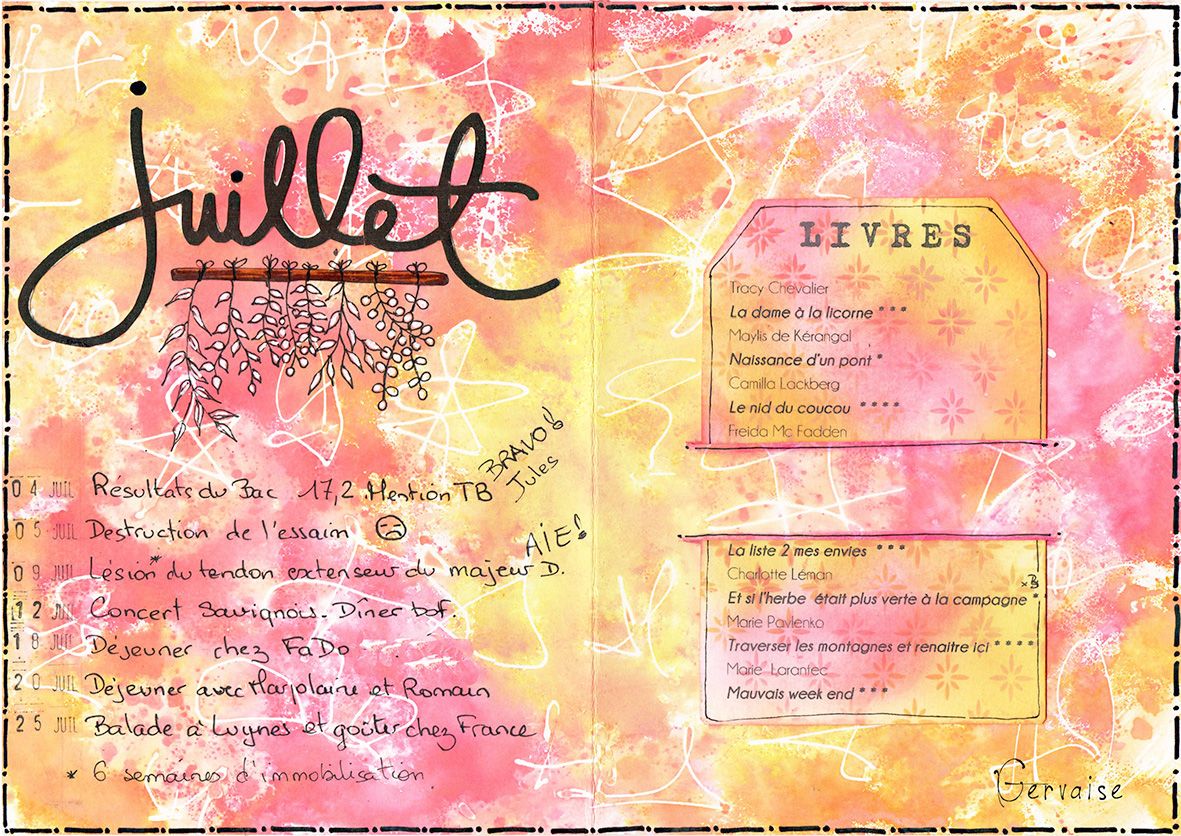 juillet
04 JUIL Résultats du Bac 17,2 Mention TB BRAVO! Jules
05 JUIL Destruction de l'essaim
09 JUIL Lésion* du tendon extenseur du majeur D. AIE!
12 JUIL Concert Savignois. Dîner bof.
18 JUIL Déjeuner chez FaDo
20 JUIL Déjeuner avec Marjolaine et Romain
25 JUIL Balade à Luynes et goûter chez France
* 6 semaines d'immobilisation
LIVRES
Tracy Chevalier
La dame à la licorne * * *
Maylis de Kérangal
Naissance d'un pont *
Camilla Lackberg
Le nid du coucou * * * *
Freida Mc Fadden
La liste 2 mes envies * * *
Charlotte Léman
Et si l'herbe était plus verte à la campagne *
Marie Pavlenko
Traverser les montagnes et renaitre ici * * * *
Marie Larantec
Mauvais week end * * *
Gervaise